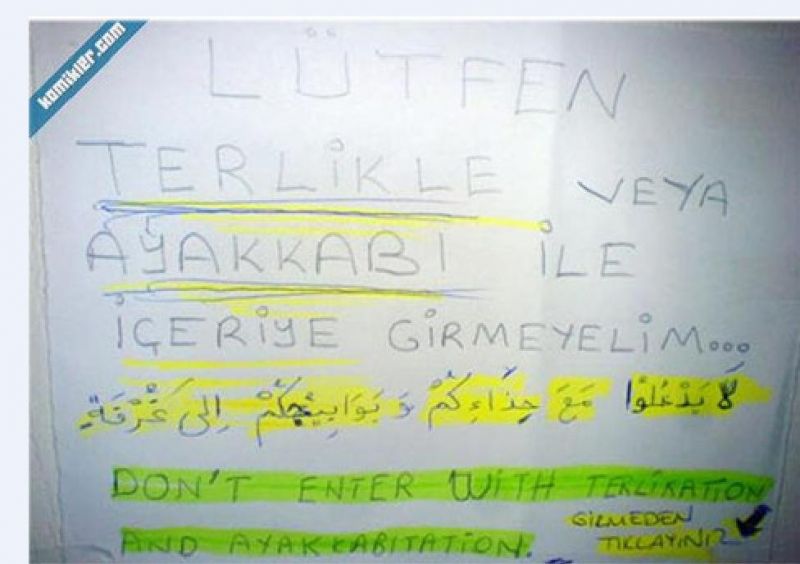 komikler.com
LÜTFEN
TERLİKLE VEYA
AYAKKABI İLE
İÇERİYE GİRMEYELİM...
لَا يَدْخُلُوا مَعَ حِذَاءِكُمْ وَ إِلَى غُرْفَةٍ
DON'T ENTER WITH TERLIKATION
AND AYAKKABITATION.
GİRMEDEN
TIKLAYINIZ